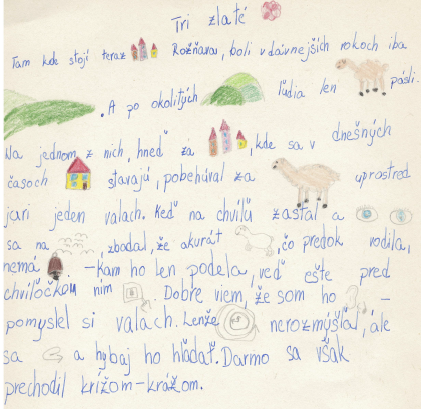 Tri zlaté
Tam kde stojí teraz Rožňava, boli v dávnejších rokoch iba
. A po okolitých ľudia len pásli.
Na jednom z nich, hneď za , kde sa v dnešných
časoch stavajú, pobehúval za uprostred
jari jeden valach. Keď na chvíľu zastal a
sa na , zbadal, že akurát , čo predok rodila,
nemá . -Kam ho len podela, veď ešte pred
chvíľočkou ním . Dobre viem, že som ho -
pomyslel si valach. Lenže nerozmýšľal, ale
sa a hybaj ho hľadať. Darmo sa však
prechodil krížom-krážom.